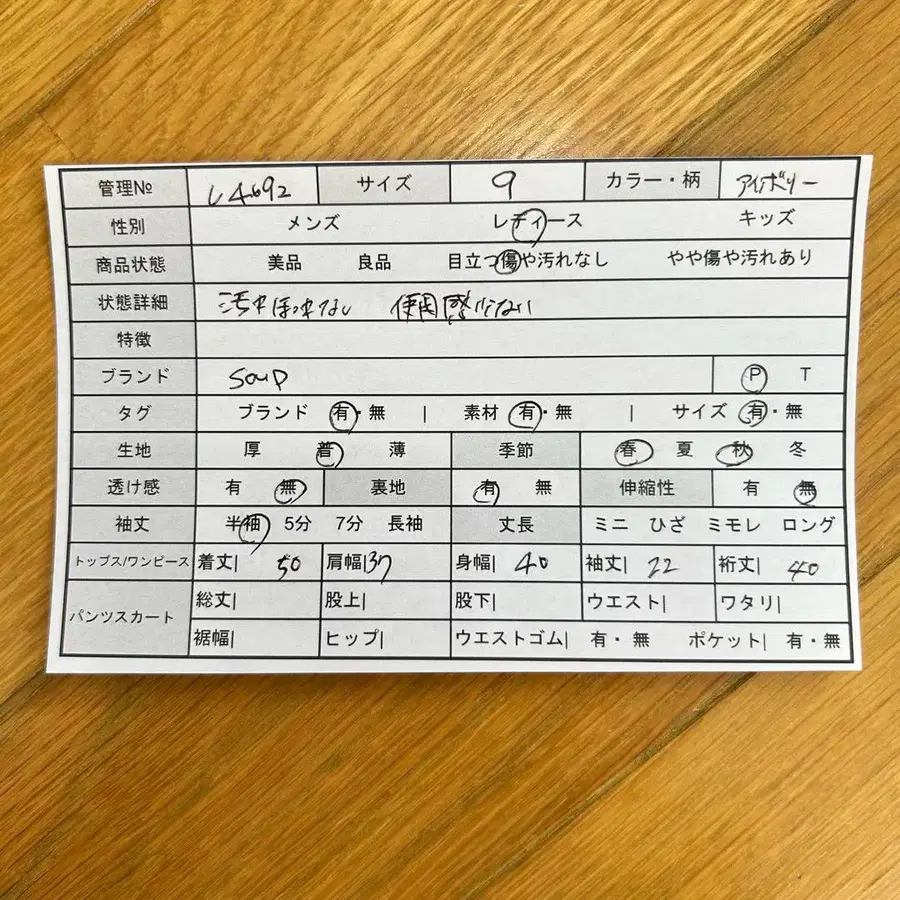 管理№ L4692 サイズ 9 カラー・柄 アイボリー
性別 メンズ レディース キッズ
商品状態 美品 良品 目立つ傷や汚れなし やや傷や汚れあり
状態詳細 汚れほつれなし 使用感少ない
特徴
ブランド soup P T
タグ ブランド 有・無 | 素材 有・無 | サイズ 有・無
生地 厚 普 薄 季節 春 夏 秋 冬
透け感 有 無 裏地 有 無 伸縮性 有 無
袖丈 半袖 5分 7分 長袖 丈長 ミニ ひざ ミモレ ロング
トップス/ワンピース 着丈| 50 肩幅| 37 身幅| 40 袖丈| 22 裄丈| 40
パンツスカート 総丈| 股上| 股下| ウエスト| ワタリ|
裾幅| ヒップ| ウエストゴム| 有・無 ポケット| 有・無